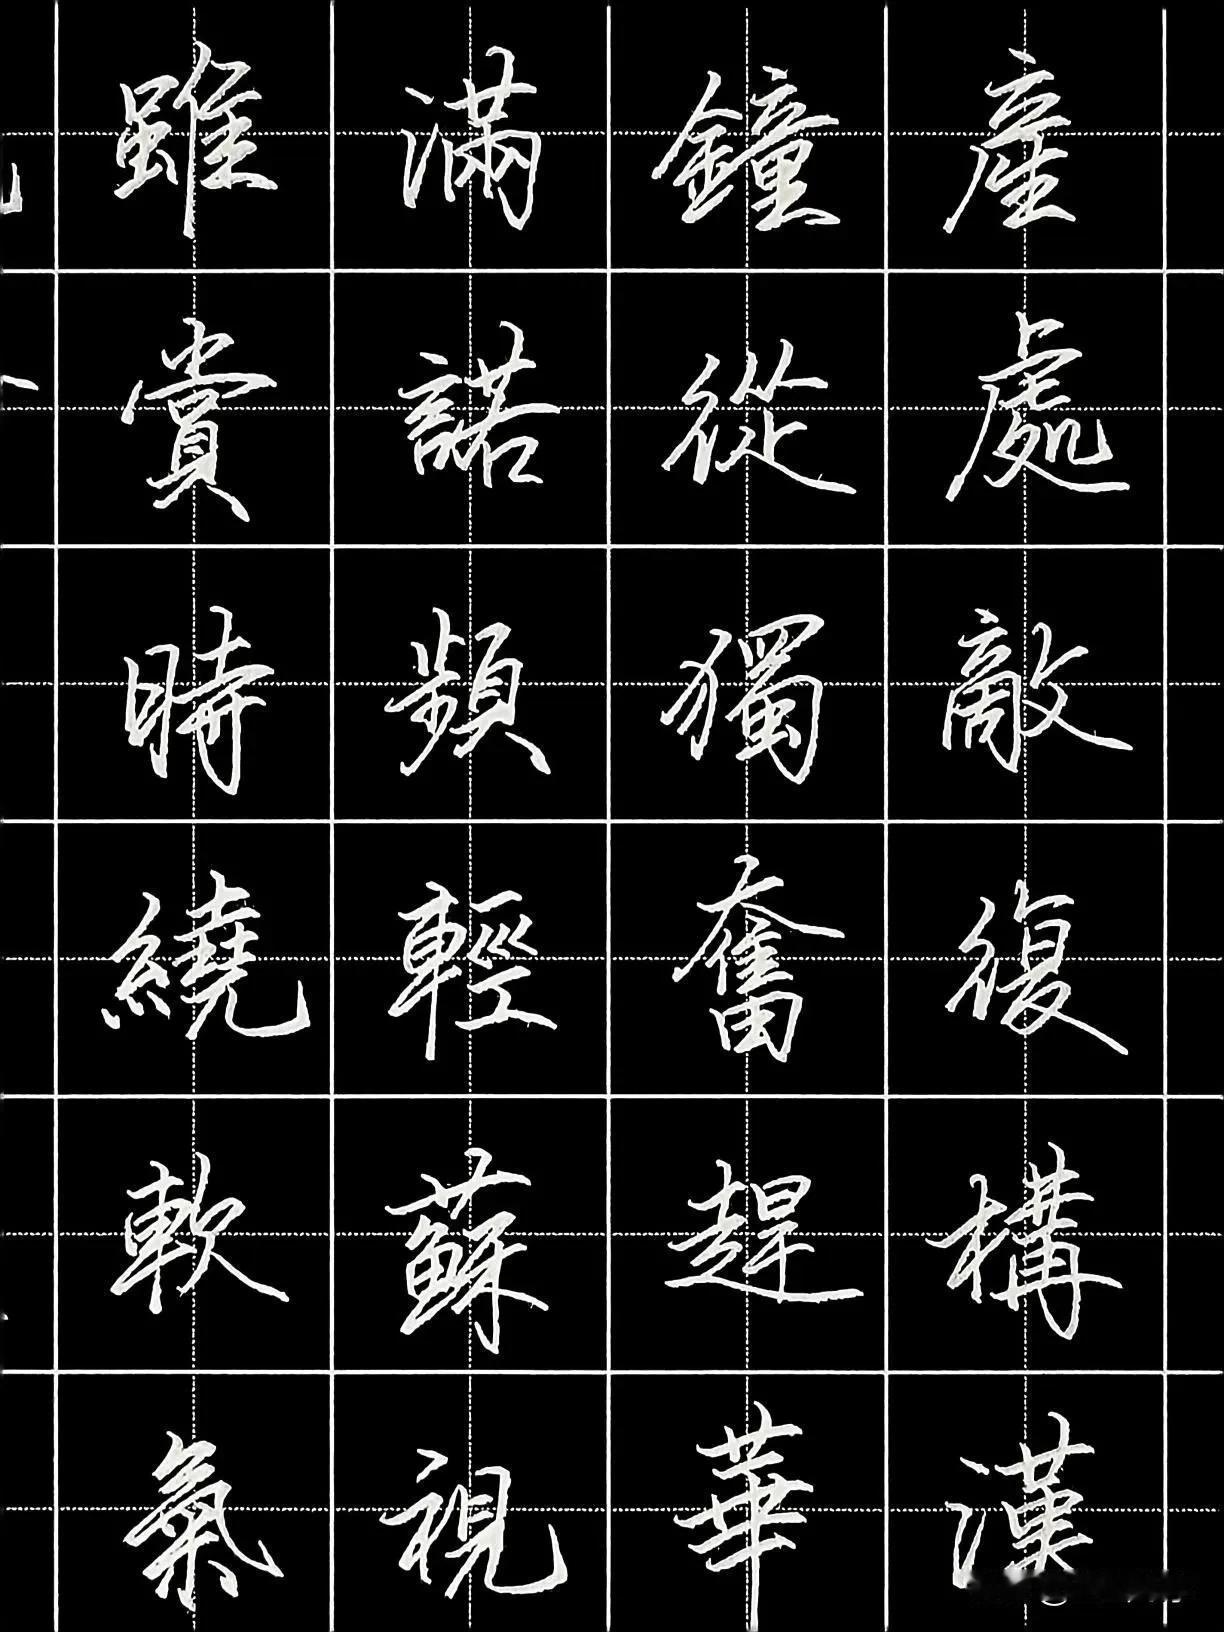 雖滿鐘產
賞諾從處
時頻獨敵
繞輕奮復
軟蘇趕構
氣視華漢